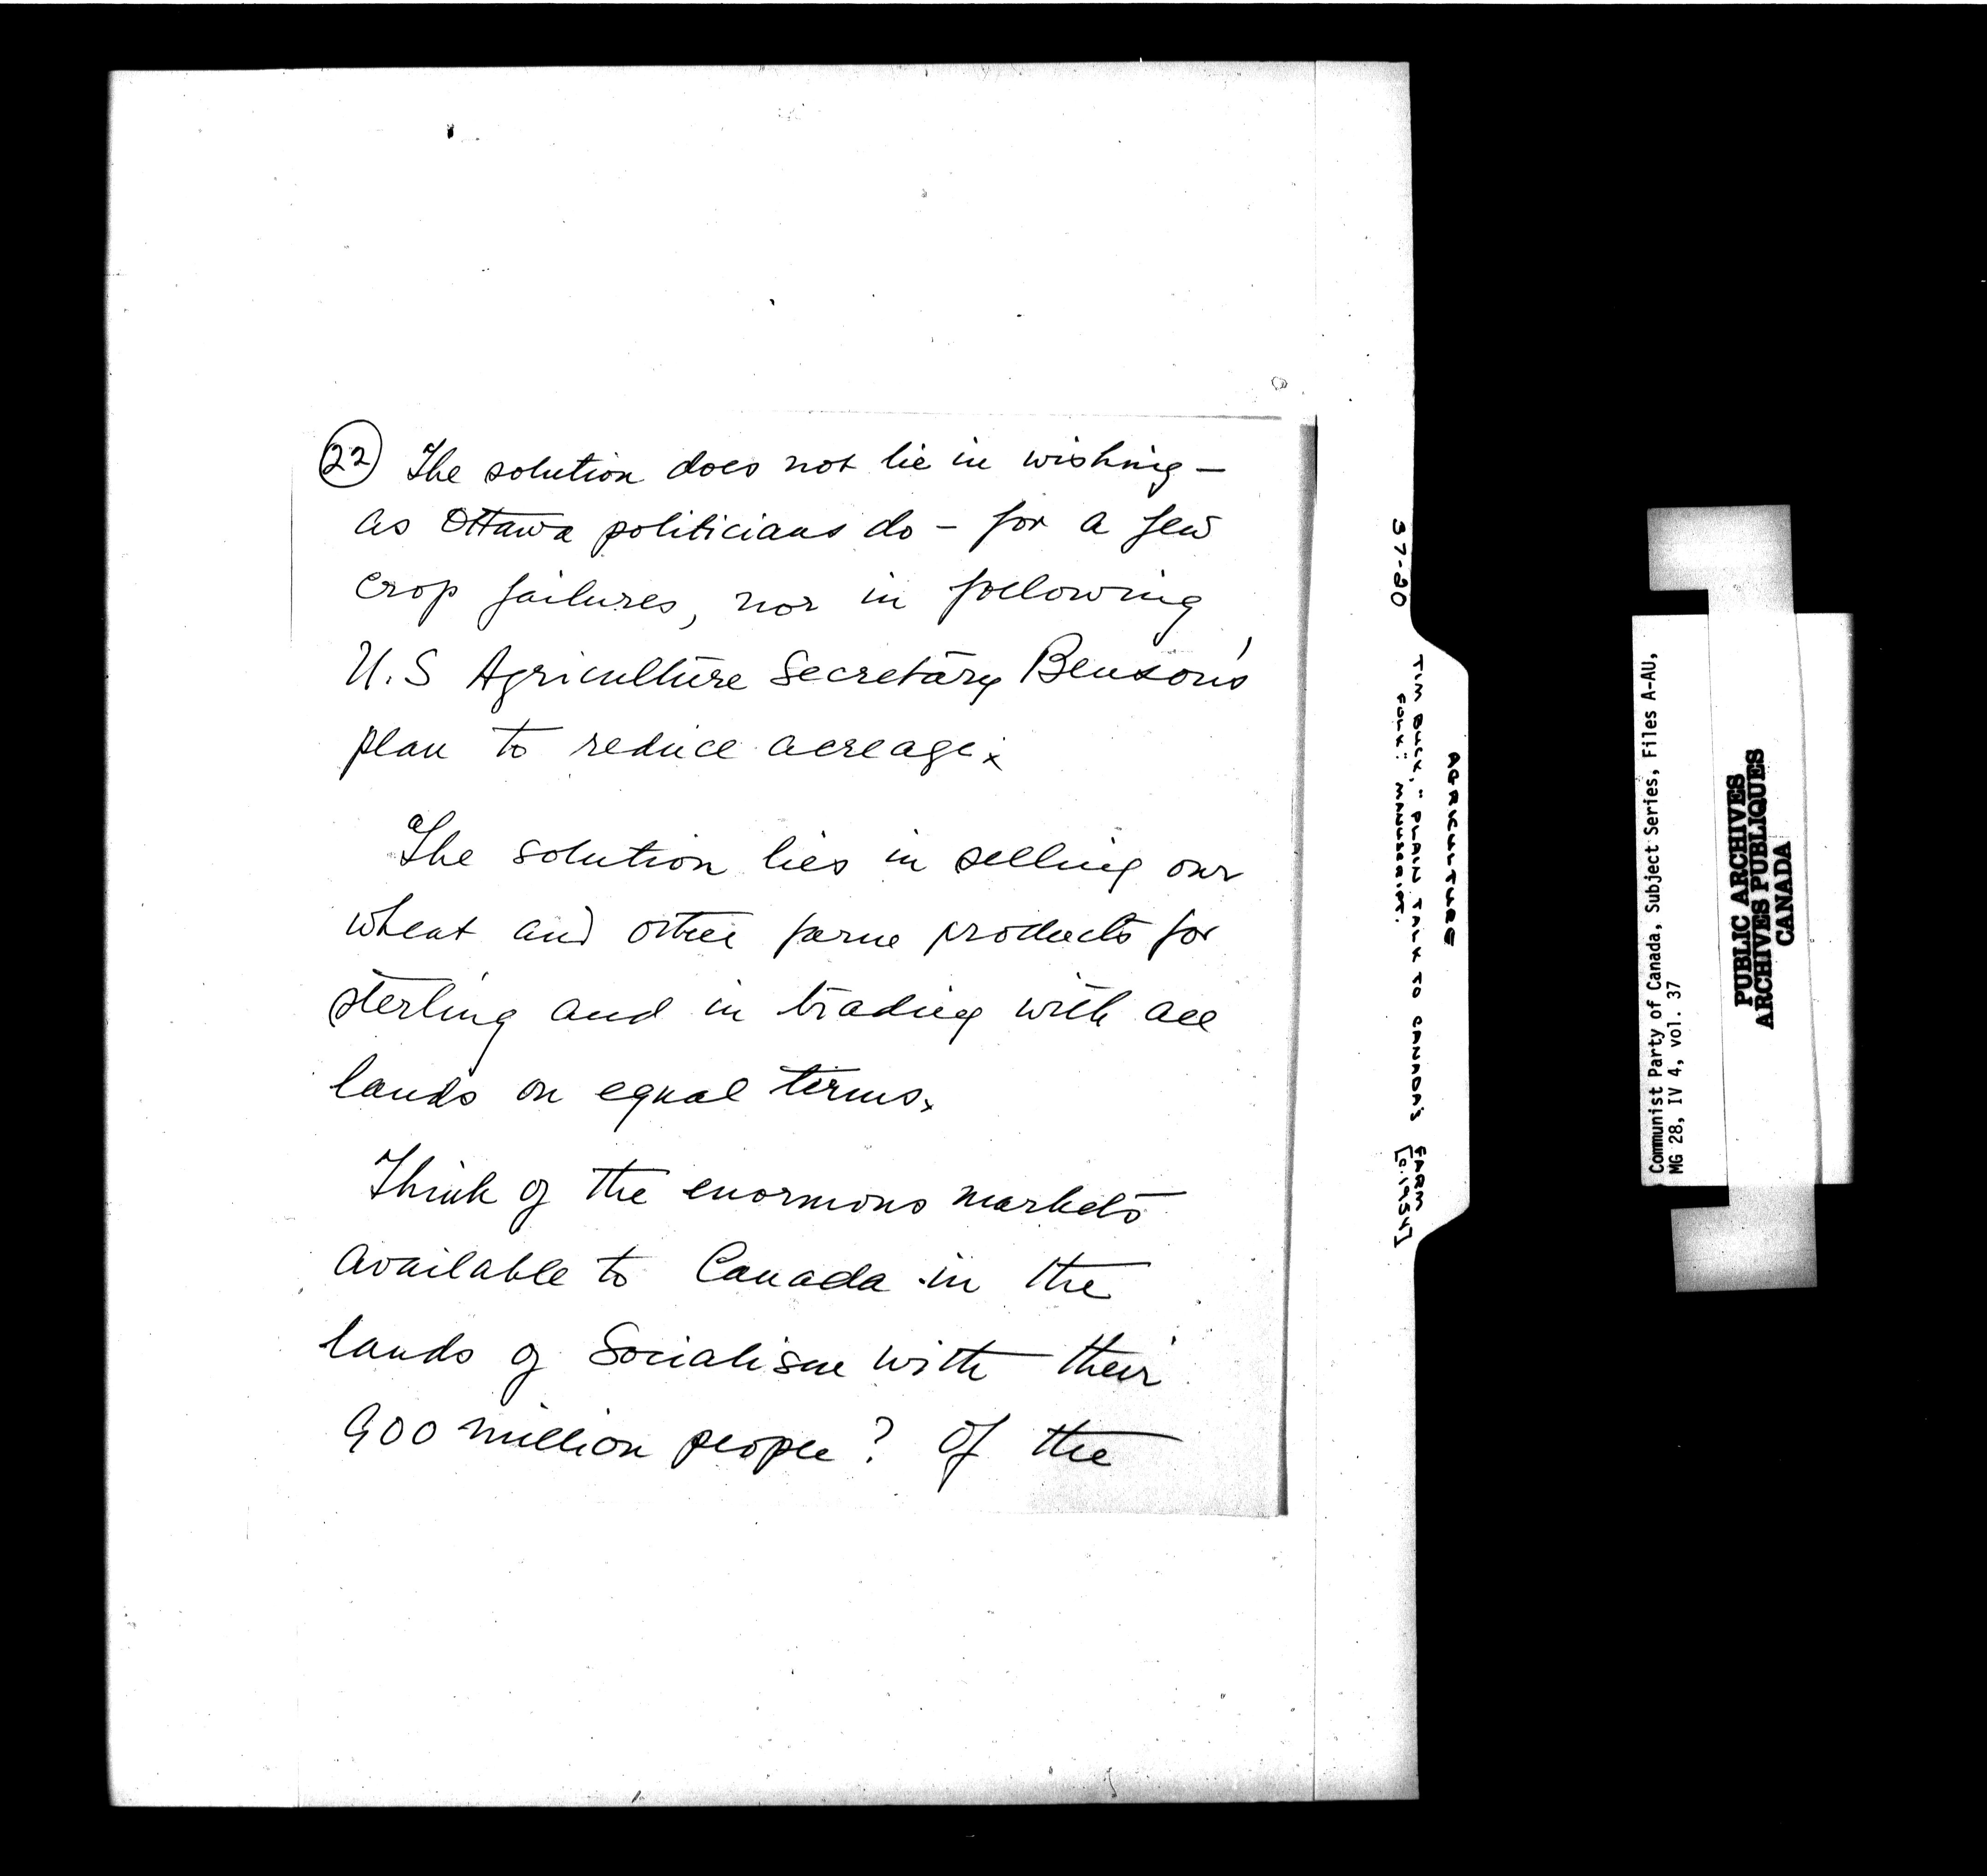 22 The solution does not lie in wishing –
as Ottawa politicians do – for a few
crop failures, nor in following
U.S Agriculture Secretary Benson's
plan to reduce acreage.
The solution lies in selling our
wheat and other farm products for
sterling and in trading with all
lands on equal terms.
Think of the enormous markets
available to Canada in the
lands of Socialism with their
900 million people? Of the
AGRICULTURE
37-20 TIM BUCK, "PLAIN TALK TO CANADA'S FARM
FOLK: MANUSCRIPT. [c.1954]
Communist Party of Canada, Subject Series, Files A-AU,
MG 28, IV 4, vol. 37
PUBLIC ARCHIVES
ARCHIVES PUBLIQUES
CANADA